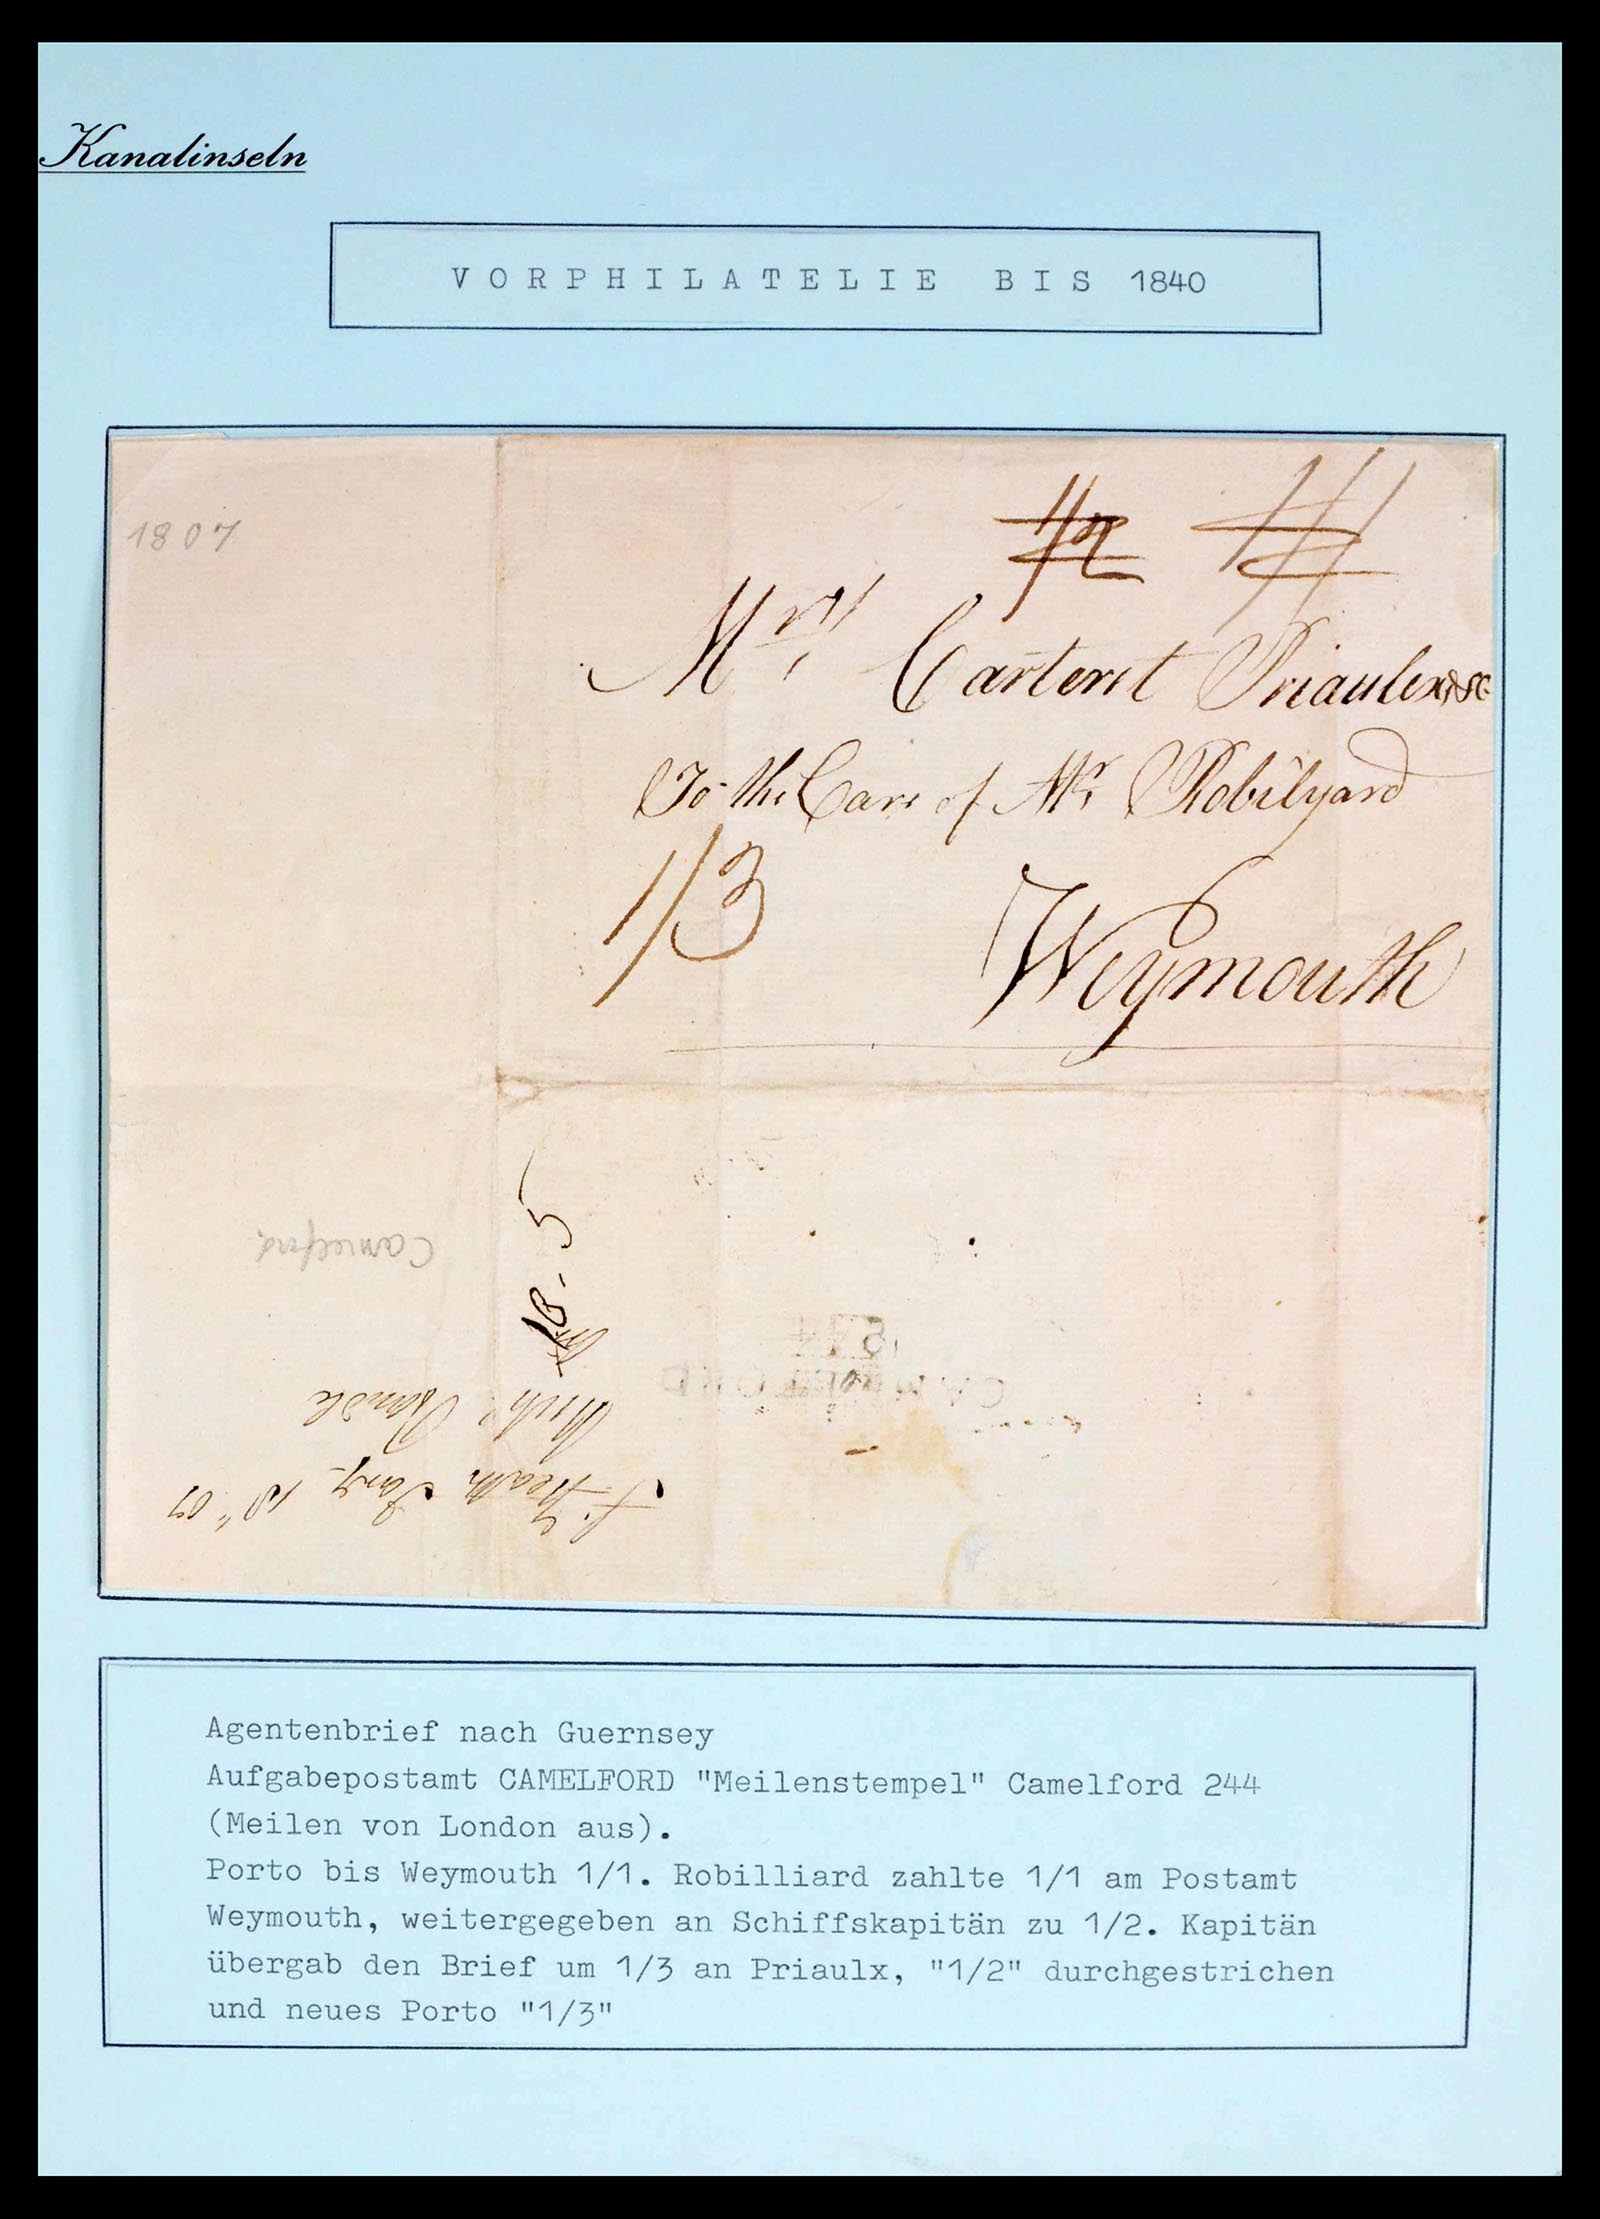 Kanalinseln
VORPHILATELIE BIS 1840
1807
1/2 1/1
Mrs Carteret Priaulx &c
To the Care of Mr Robilyard
1/3
Weymouth
Camelford
CAMELFORD
Agentenbrief nach Guernsey
Aufgabepostamt CAMELFORD "Meilenstempel" Camelford 244
(Meilen von London aus).
Porto bis Weymouth 1/1. Robilliard zahlte 1/1 am Postamt
Weymouth, weitergegeben an Schiffskapitän zu 1/2. Kapitän
übergab den Brief um 1/3 an Priaulx, "1/2" durchgestrichen
und neues Porto "1/3"